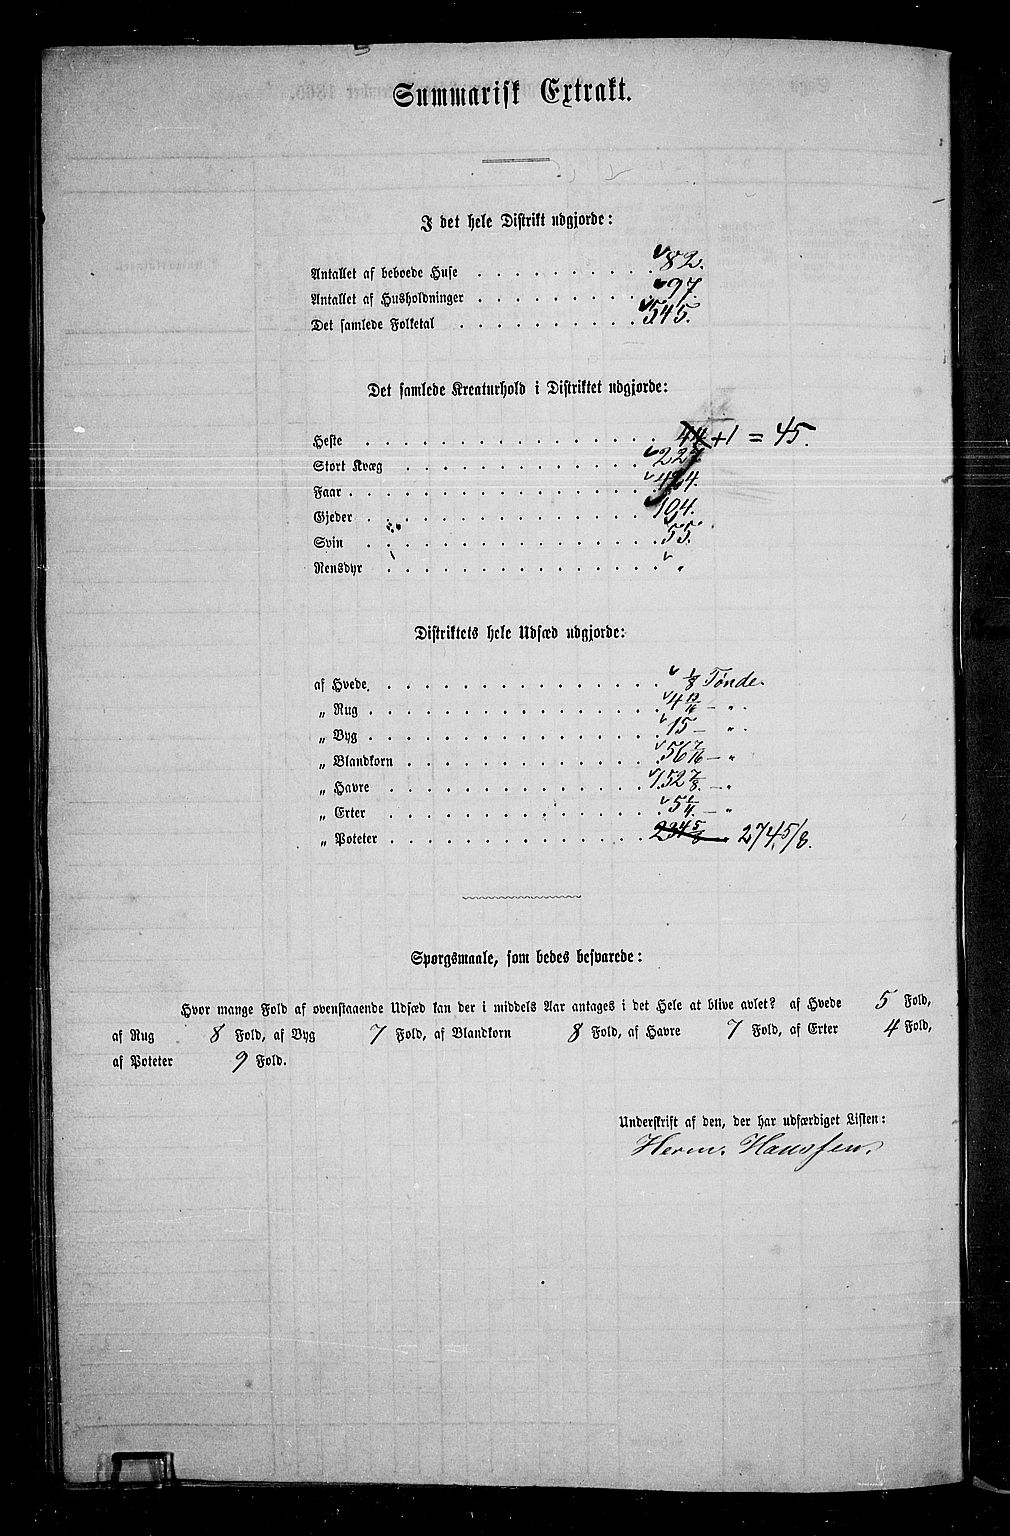 Summarisk Extrakt.
I det hele Distrikt udgjorde:
Antallet af beboede Huse . . . . . . . . . . 82.
Antallet af Husholdninger . . . . . . . . . . 97.
Det samlede Folketal . . . . . . . . . . 545.
Det samlede Kreaturhold i Distriktet udgjorde:
Heste . . . . . . . . . . 44 + 1 = 45.
Stort Kvæg . . . . . . . . . . 227
Faar . . . . . . . . . . 424.
Gjeder . . . . . . . . . . 194.
Svin . . . . . . . . . . 55.
Rensdyr . . . . . . . . . . "
Distriktets hele Udsæd udgjorde:
af Hvede . . . . . . . . . . 1/8 Tønde.
„ Rug . . . . . . . . . . 4 13/16 — " .
„ Byg . . . . . . . . . . 15 — " .
„ Blandkorn . . . . . . . . . . 56 7/16 — "
„ Havre . . . . . . . . . . 152 7/8. — "
„ Erter . . . . . . . . . . 5 1/4. — "
„ Poteter . . . . . . . . . . 234 5/8 — 274, 5/8.
Spørgsmaale, som bedes besvarede:
Hvor mange Fold af ovenstaaende Udsæd kan der i middels Aar antages i det Hele at blive avlet? af Hvede 5 Fold,
af Rug 8 Fold, af Byg 7 Fold, af Blandkorn 8 Fold, af Havre 7 Fold, af Erter 4 Fold,
af Poteter 9 Fold.
Underskrift af den, der har udfærdiget Listen:
Herm. Hanssen.